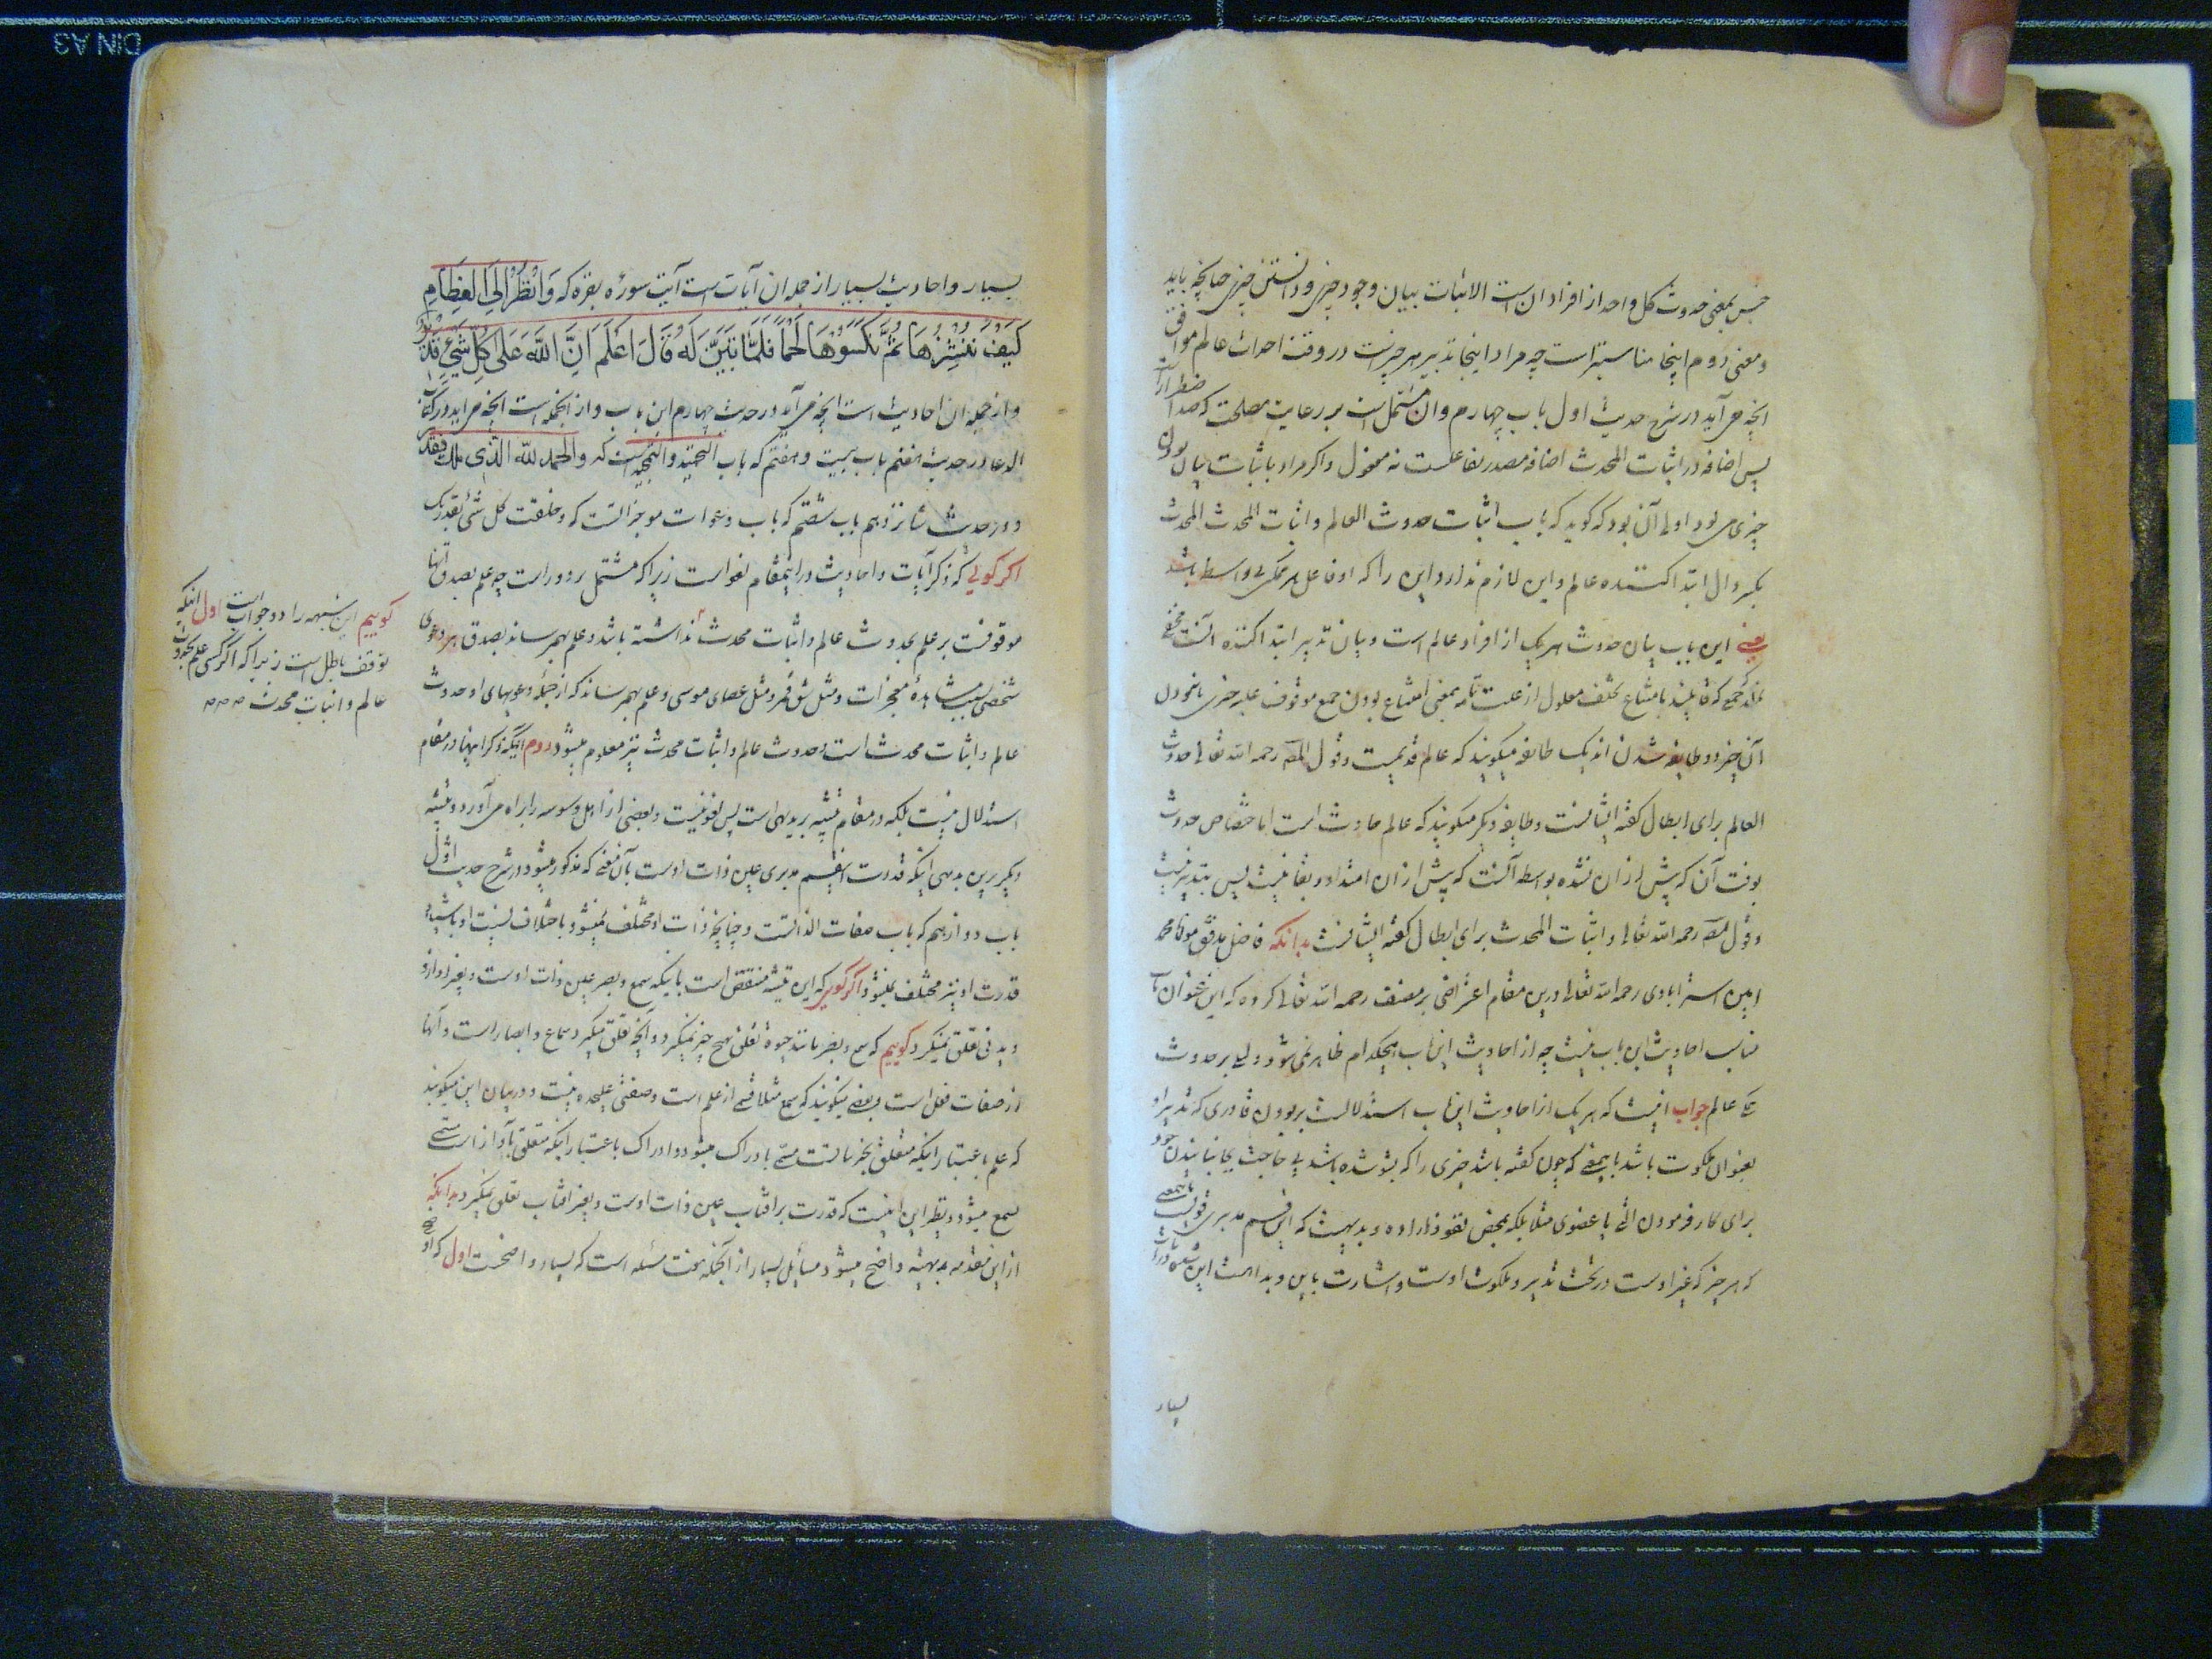 جنس بمعنی حدوث کل واحد از افراد ان است الاثبات بیان وجود چیزی و دانستن چیزی چنانچه باید
ومعنی دوم اینجا مناسبتر است چه مراد اینجا تدبیر هر چیز است در وقت احداث عالم موافق
انچه می آید در شرح حدیث اول باب چهارم وان مشتمل است بر رعایت مصلحت که ضد اضطرار است
پس اضافه در اثبات المحدث اضافه مصدر بفاعلست نه مفعول واکر مراد باثبات بیان بودن
چیزی می بود اولی آن بود که کوید که باب اثبات حدوث العالم واثبات المحدث المحدث
بکسر دال ابتدا کننده عالم واین لازم ندارد این را که او فاعل هر ممکن بی واسطه باشد
یعنی این باب بیان حدوث هر یک از افراد عالم است وبیان تدبیر ابتدا کننده انست مخفی
نماند جمع که قایلند بامتناع تخلف معلول از علت تامه بمعنی امتناع بودن جمیع موقوف علیه چیزی با نبودن
آن چیز دو طایفه شده اند یک طایفه میکویند که عالم قدیمیست وقول المص رحمه الله تعالی حدوث
العالم برای ابطال کفته ایشانست وطایفه دیکر میکویند که عالم حادث است اما اختصاص حدوث
بوقت آن که پیش از ان نشده بواسطه آنست که پیش از ان امتداد وبقا نیست پس بتدبیر نیست
وقول المص رحمه الله تعالی واثبات المحدث برای ابطال کفته ایشانست بدانکه فاضل مدقق مولانا محمد
امین استرابادی رحمه الله تعالی درین مقام اعتراضی بر مصنف رحمه الله تعالی کرده که این عنوان باب
مناسب احادیث این باب نیست چه از احادیث این باب هیچکدام ظاهر نمی شود دلیلی بر حدوث
کل عالم جواب اینست که هر یک از احادیث این باب استدلالست بر بودن قادری که تدبیر او
بعنوان ملکوت باشد باینمعنی که چون کفته باشد چیزی را که بشو شده باشد بی حاجت بجنبانیدن خود
برای کار فرمودن التی یا عضوی مثلا بلکه بمحض نفوذ اراده وبدیهیست که این قسم مدبری فوقیست باینمعنی
که هر چیز که غیر اوست در تحت تدبیر وملکوت اوست واشارت باین وبداهت این شده در آیات
بسیار
بسیار واحادیث بسیار از جمله ان آیات است آیت سوره بقره که وَانْظُرْ اِلَی الْعِظَامِ
کَیْفَ نُنْشِزُهَا ثُمَّ نَکْسُوْهَا لَحْمًا فَلَمَّا تَبَیَّنَ لَهُ قَالَ اَعْلَمُ اَنَّ اللهَ عَلَی کُلِّ شَیْءٍ قَدِیْرٌ
واز جمله ان احادیث است انچه می آید در حدیث چهارم این باب واز انجمله است انچه می اید در کتاب
الدعا در حدیث هفتم باب بیست وهفتم که باب التحمید والتمجید است که والحمد لله الذی ملک فقدر
ودر حدیث شانزدهم باب شصتم که باب دعوات موجزاتست که وخلقت کل شیء بقدرتک
اکر کویی که ذکر آیات واحادیث در اینمقام لغو است زیرا که مشتمل بر دور است چه علم بصدق آنها
موقوفست بر علم بحدوث عالم واثبات محدث نداشته باشد وعلم بهم رساند بصدق هر دعوی
شخصی بسبب مشاهده معجزات ومثل شق قمر ومثل عصای موسی وعلم بهم رساند که از جمله دعویهای او حدوث
عالم واثبات محدث است حدوث عالم واثبات محدث نیز معلوم میشود دوم اینکه ذکر اینها در مقام
استدلال نیست بلکه در مقام تنبیه بر بدیهی است پس لغو نیست وبعضی از اهل وسوسه را براه می آورد وتنبیه
دیکر برین بدیهی اینکه قدرت این قسم مدبری عین ذات اوست بآن معنی که مذکور میشود در شرح حدیث اول
باب دوازدهم که باب صفات الذاتست وچنانچه ذات او مختلف نمیشود باختلاف نسبت او باشیا
قدرت او نیز مختلف نمیشود اکر کویی که این تنبیه منتقض است باینکه سمع وبصر عین ذات اوست وبغیر آواز و
دیدنی تعلق نمیکیرد کوییم که سمع وبصر مانند حیوة تعلق بهیچ چیز نمیکیرد وآنچه تعلق میکیرد سماع وابصار است وآنها
از صفات فعل است وبعضی میکویند که سمع مثلا قسمی از علم است وصفتی علیحده نیست ودر بیان این میکویند
که علم باعتبار اینکه متعلق بجزئیاتست مسمی بادراک میشود وادراک باعتبار اینکه متعلق بآواز است مسمی
بسمع میشود ونظیر این اینست که قدرت بر افتاب عین ذات اوست وبغیر افتاب تعلق نمیکیرد بدانکه
از این مقدمه بدیهیه واضح میشود مسایل بسیار از آنجمله هفت مسئله است که بسیار واضحست اول که او
کوییم این شبهه را دو جواب است اول اینکه
توقف باطل است زیرا که اکر کسی علم بحدوث
عالم واثبات محدث
DIN A3